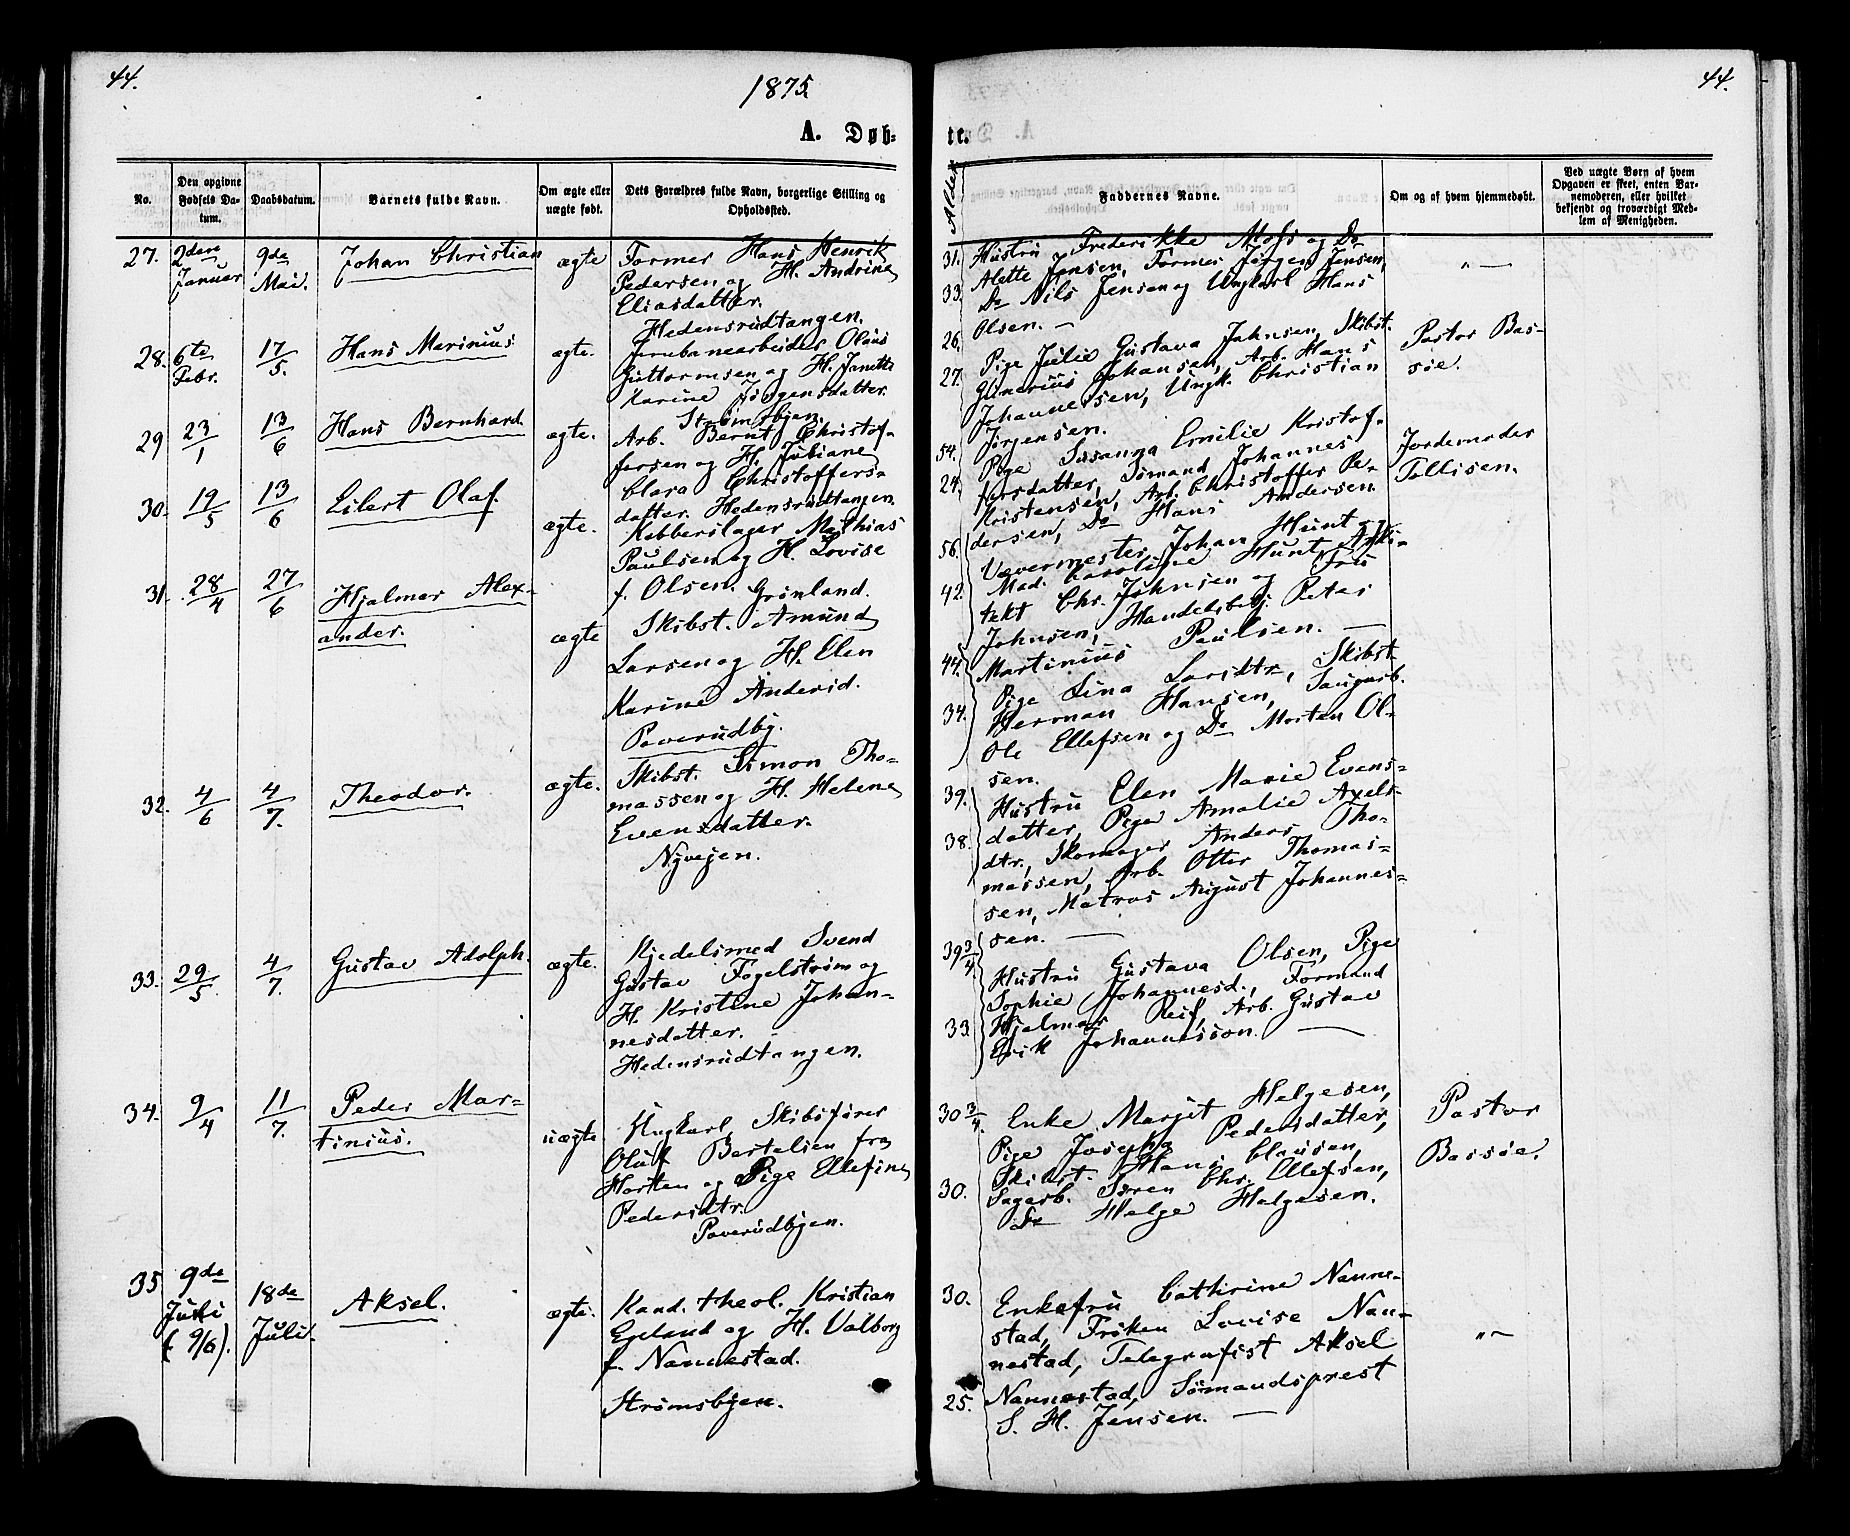 44.
1875.
44.
A. Døb-
te.
No.
Den opgivne Fødsels Datum.
Daabsdatum.
Barnets fulde Navn.
Om ægte eller uægte født.
Dets Forældres fulde Navn, borgerlige Stilling og Opholdssted.
Alder
Faddernes Navne.
Om og af hvem hjemmedøbt.
Ved uægte Børn af hvem Opgaven er skeet, enten Barnemoderen, eller hvilket bekjendt og troværdigt Medlem af Menigheden.
27.
2den Januar
9de Mai.
Johan Christian
ægte
Former Hans Henrik
Pedersen og H. Andrine
Eliasdatter.
Hedensrudtangen.
31.
33.
Hustru Frederikke og Do
Alette Jensen, Former Jørgen Jensen,
Do Nils Jensen og Ungkarl Hans
Olsen. —
" —
28.
6te Febr.
17/5.
Hans Marinius
ægte.
Jernbanearbeider Olaus
Guttormsen og H. Janette
Karine Jørgensdatter.
Strømsbyen.
26.
27.
Pige Julie Gustava Jahnsen, Skibst.
Gunerius Johansen, Arb. Hans
Johannessen, Ungk. Christian
Jørgensen.
Pastor Bas-
søe.
29
23/1
13/6
Hans Bernhard.
ægte.
Arb. Bernt Christof-
fersen og H. Juliane
Clara Christoffers-
datter. Hedensrudtangen.
54.
24.
Pige Susanna Emilie Kristof-
fersdatter, Sømand Johannes
Kristensen, Arb. Christoffer Pe-
dersen, Do Hans Andersen.
Jordemoder
Tollisen.
30.
19/5
13/6
Eilert Olaf
ægte.
Kobberslager Mathias
Paulsen og H. Lovise
f. Olsen. Grønland.
56.
42.
Vævermester Johan Hunt
Mad. Karoline Hunt, Arki-
tekt Chr. Johnsen og Fru
Johnsen, Handelsbetj. Peter
Martinius Paulsen. —
31.
28/4
27/6
Hjalmar Alex-
ander.
ægte
Skibst. Amund
Larsen og H. Elen
Karine Andersd.
Poverudby.
44.
34.
Pige Lina Larsdtr., Skibst.
Herman Hansen, Saugarb.
Ole Ellefsen og Do Morten Ol-
sen.
32.
4/6
4/7.
Theodor.
ægte.
Skibst. Simon Tho-
massen og H. Helene
Evensdatter.
Nyvejen.
39.
38.
Hustru Elen Marie Evens-
datter, Pige Amalie Axels-
dtr., Skomager Anders Tho-
massen, Arb. Otter Thomas-
sen, Matros August Johannes-
sen. —
33.
29/5.
4/7.
Gustav Adolph.
ægte.
Kjedelsmed Svend
Gustav Fogelstrøm og
H. Kristine Johan-
nesdatter.
Hedensrudtangen.
39 3/4
33.
Hustru Gustava Olsen, Pige
Sophie Johannesd., Formand
Hjalmar Reif, Arb. Gustav
Erik Johannesson. —
34.
9/4
11/7.
Peder Mar-
tinius.
uægte
Ungkarl, Skibsfører
Oluf Bertelsen fra
Horten og Pige Ellefine
Pedersdtr.
Poverudbyen.
30 3/4.
30.
Enke Marjit Helgesen,
Pige Josepha Pedersdatter,
Skibst. Hans Clausen,
Sagarb. Søren Chr. Ellefsen,
Do Helge Helgesen.
Pastor
Bassøe.
35
9de Juli (9/6).
18de Juli.
Aksel.
ægte.
Kand. theol. Kristian
Egeland og H. Valborg
f. Nannestad.
Strømsbyen.
30.
25.
Enkefru Cathrine Nanne-
stad, Frøken Lovise Nan-
nestad, Telegrafist Aksel
Nannestad, Sømandsprest
S. H. Jensen. —
" —